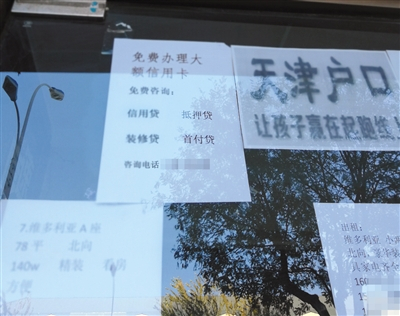 免费办理大
额信用卡
免费咨询：
信用贷 抵押贷
装修贷 首付贷
咨询电话
天津户口
让孩子赢在起跑线上
7.维多利亚 A 座
78 平 北向
140w 精装 看房
方便
出租：
维多利亚 小
北向，豪华装
具家电齐全